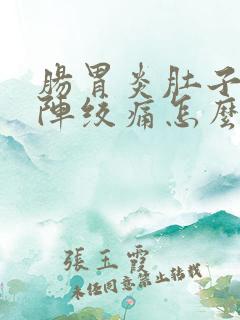 腸胃炎肚子
陣絞痛怎麼
張玉霞
未经同意禁止转载